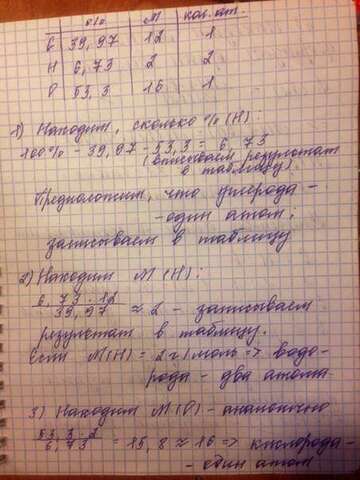 % M кол. ат.
C 39,97 12 1
H 6,73 2 2
O 53,3 16 1
1) Находим, сколько % (H):
100% - 39,97 - 53,3 = 6,73
(вписываем результат
в таблицу).
Предположим, что углерода -
- один атом;
записываем в таблицу
2) Находим M(H):
6,73 · 12
39,97
≈ 2 - записываем
результат в таблицу.
Если M(H) = 2 г/моль => водо-
рода - два атома
3) Находим M(O) - аналогично
53,3 · 2
6,73
= 15,8 ≈ 16 => кислорода -
- один атом